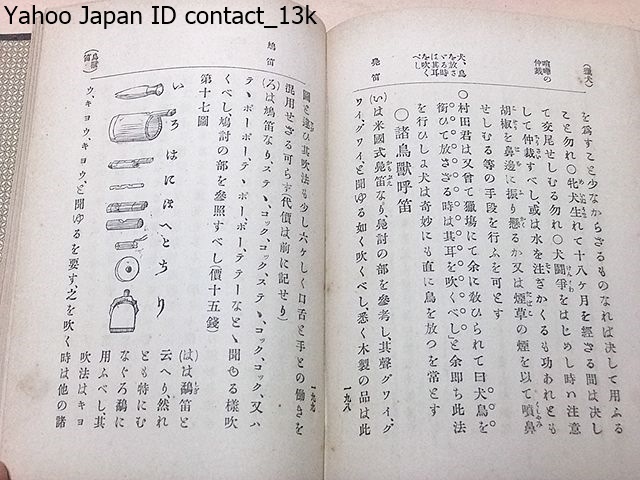 Yahoo Japan ID contact_13k
（獵犬）
喧嘩の仲裁
犬、鳥を放さゞる時は其耳を吹くべし
鳧笛
を爲すこと少なからざるものなれば决して用ふる
こと勿れ〇牝犬生れて十八ケ月を經ざる間は决し
て交尾せしむる勿れ〇犬鬪爭をはじめし時ハ注意
して仲裁すべし、或は水を注ぎかくるも功あれとも
胡椒を鼻邊に振り懸るか又は煙草の煙を以て噴鼻
せしむる等の手段を行ふを可とす
〇村田君は又曾て獵塲にて余に敎ひられて曰犬鳥を
銜ひて放さゞる時は其耳を吹くべしと余即ち此法
を行ひしよ犬は奇妙にも直に鳥を放つを常とす
〇諸鳥獸呼笛
（い）は米國式鳧笛なり鳧討の部を參考し其聲グワイ、グ
ワイ、グワイ、と聞ゆる如く吹くべし、悉く木製の品は此
一九八
（鳥獸）
鳩笛
圖と違ひ其吹法も少し六ケしく口舌と手との働きを
混用せざる可らず代價は前に記せり）
（ろ）は鳩笛なり、ステヽ、コック、コック、ステヽ、コック、コック、又ハ
テヽ、ボーボー、テヽ、ボーボー、テテーなどゝ聞ゆる樣吹
くべし鳩討の部を參照すべし（價十五錢）
第十七圖
い
ろ
は
に
ほ
へ
と
ち
り
（は）は鷸笛と
云へり然れ
とも特にむ
なぐろ鷸に
用ふべし其
吹法はキヨ
ウ、キヨウ、キヨウ、と聞ゆるを要す、之を吹く時は他の諸
一九九